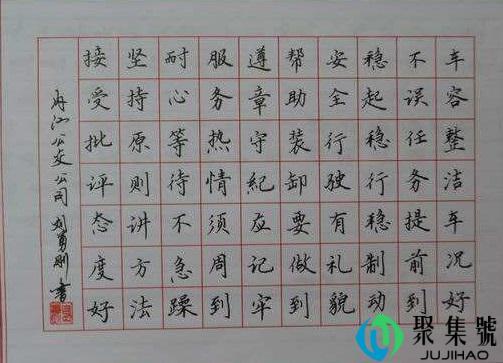 车容整洁车况好
不误任务提前到
稳起稳行稳制动
安全行驶有礼貌
帮助装卸要做到
遵章守紀应记牢
服务热情须周到
耐心等待不急躁
坚持原则讲方法
接受批评态度好
公交公司 刘勇刚 书
聚集號
JUJIHAO.COM